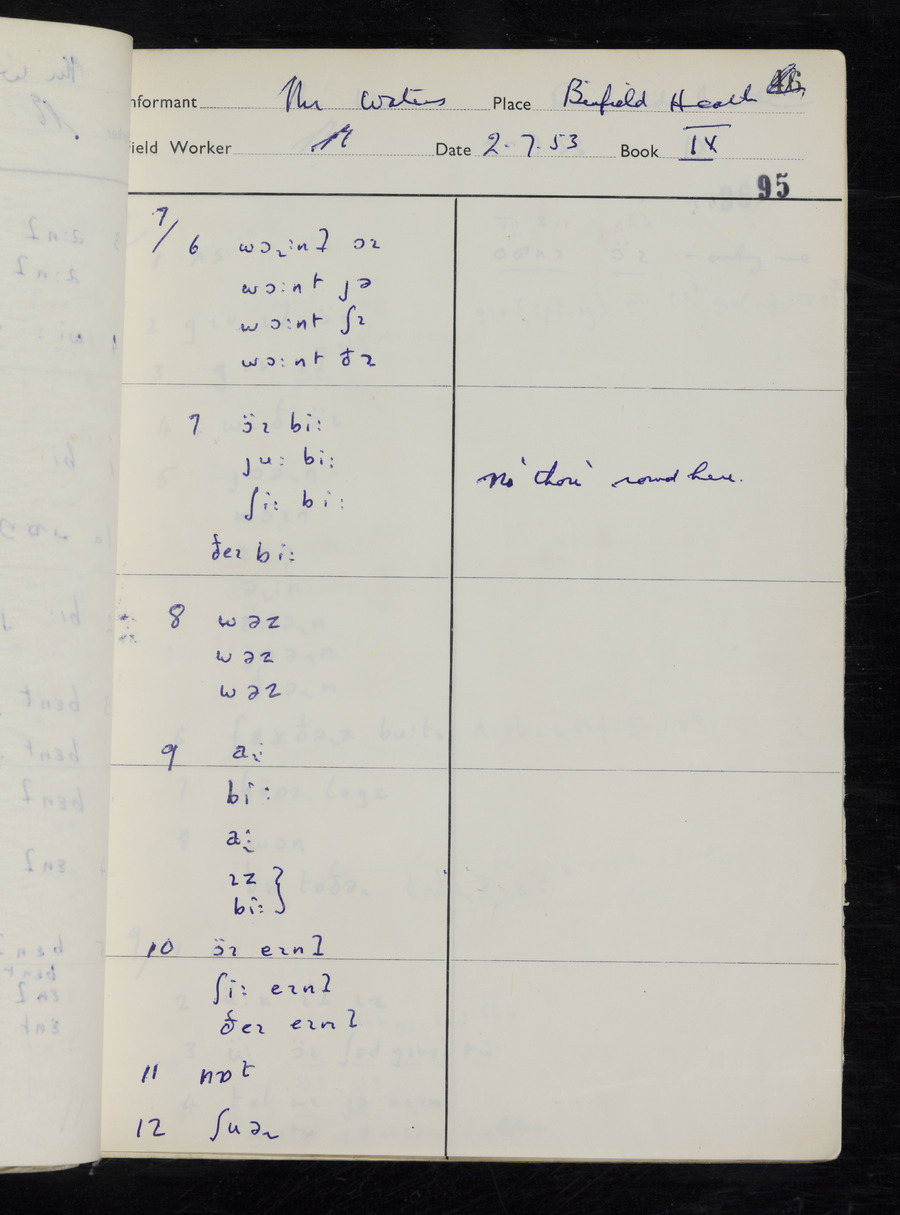 Informant Mr Waters Place Binfield Heath
Field Worker Date 2.7.53 Book IX
95
7/ 6 wɔɹːnʔ ɔɪ
wɔːnt jə
wɔːnt ʃɪ
wɔːnt ðɪ
7 ɔ̈ɪ biː
juː biː
ʃiː biː
No 'thou' round here.
ðeɪ biː
8 wəz
wəz
wəz
9 aː
biː
aː
ɪz }
biː }
10 ɔ̈ɪ eɪnʔ
ʃiː eɪnʔ
ðeɪ eɪnʔ
11 nɒt
12 ʃuəɹ